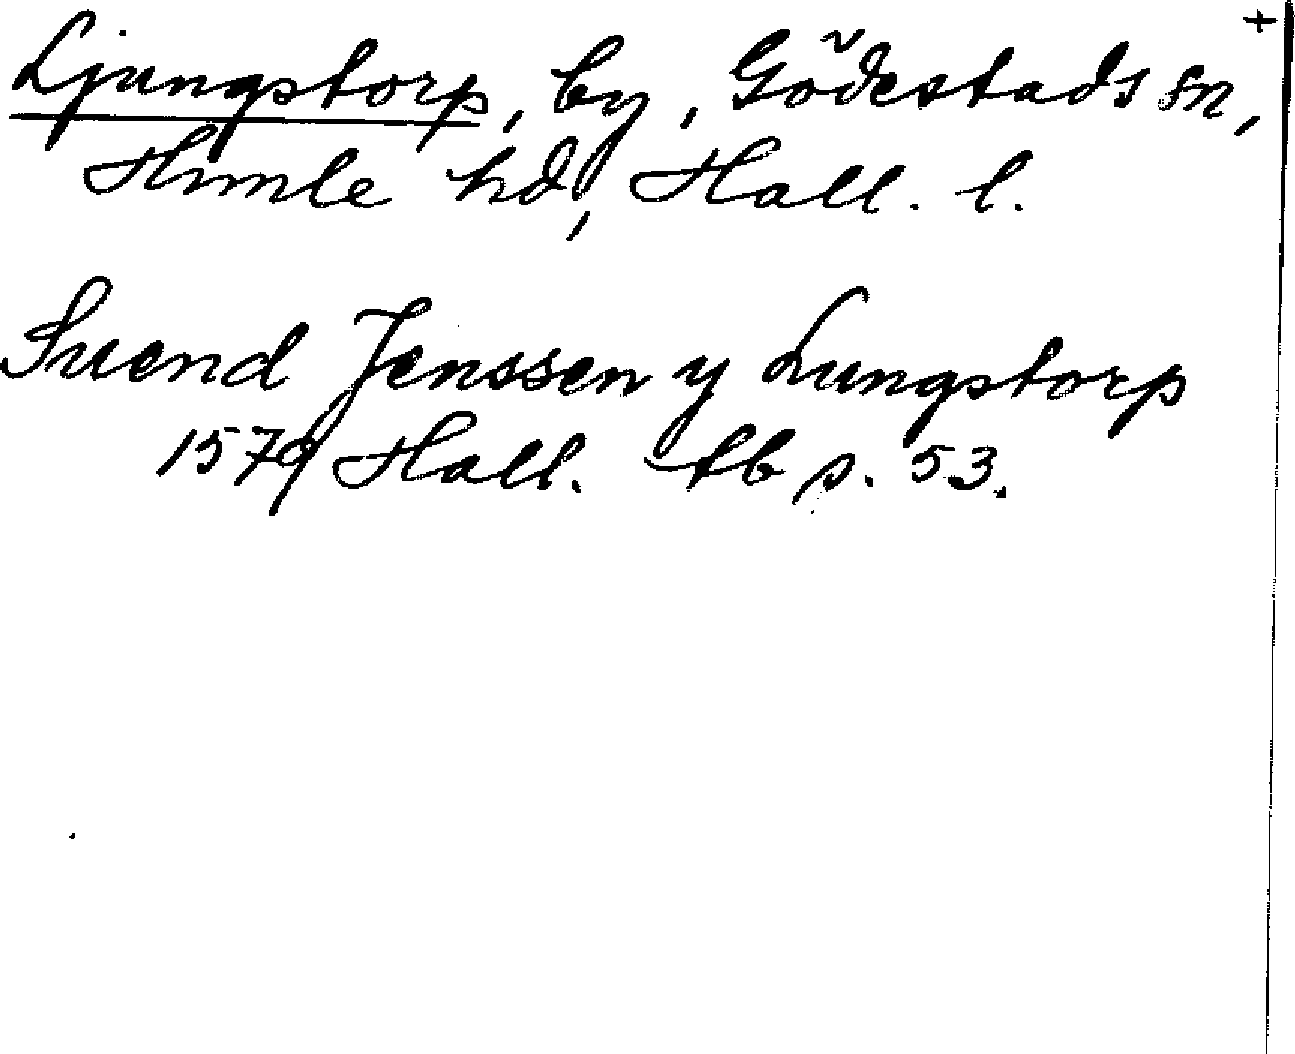 +
Ljungstorp, by, Gödestads sn,
Himle hd, Hall. l.
Suend Jenssen y Lungstorp
1579 Hall. tb s. 53.